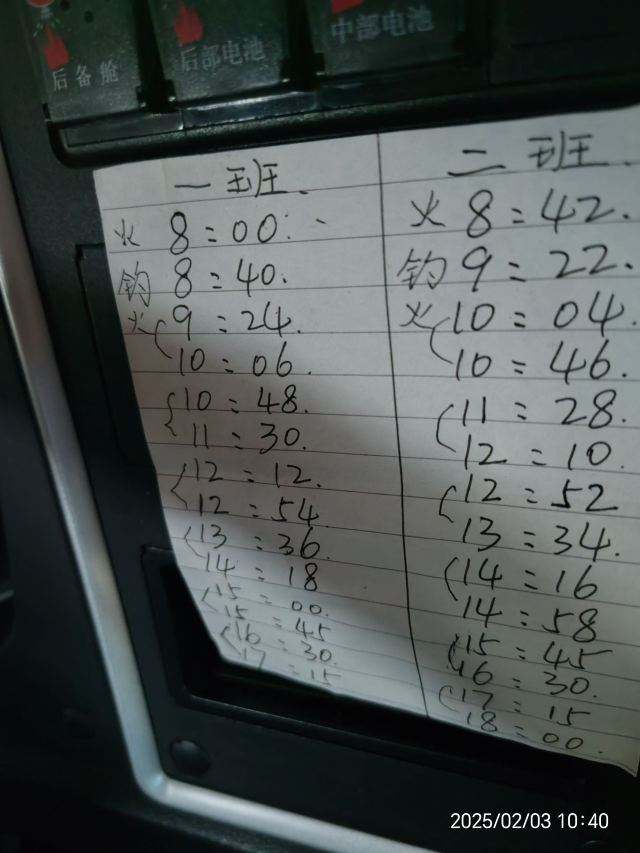 后备舱
后部电池
中部电池
一班.
火 8:00.
钓 8:40.
火 9:24.
10:06.
10:48.
11:30.
12:12.
12:54.
13:36.
14:18
15:00.
15:45
16:30.
17:15
二班.
火 8:42.
钓 9:22.
火 10:04.
10:46.
11:28.
12:10.
12:52
13:34.
14:16
14:58
15:45
16:30.
17:15
18:00.
2025/02/03 10:40